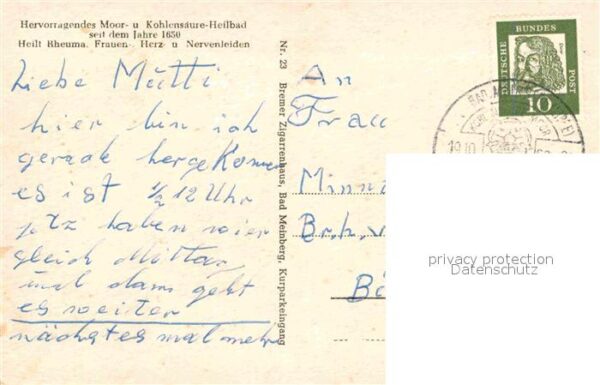 Hervorragendes Moor- u Kohlensäure-Heilbad
seit dem Jahre 1650
Heilt Rheuma, Frauen- Herz- u Nervenleiden
Liebe Mutti
hier bin ich
gerade hergekommen
es ist 1/2 12 Uhr
jetz haben wier
gleich Mittag
und dann geht
es weiter
nächstes mal mehr
Nr. 23 Bremer Zigarrenhaus, Bad Meinberg, Kurparkeingang
An
Frau
Minni
DEUTSCHE BUNDES POST
10
BAD
privacy protection
Datenschutz